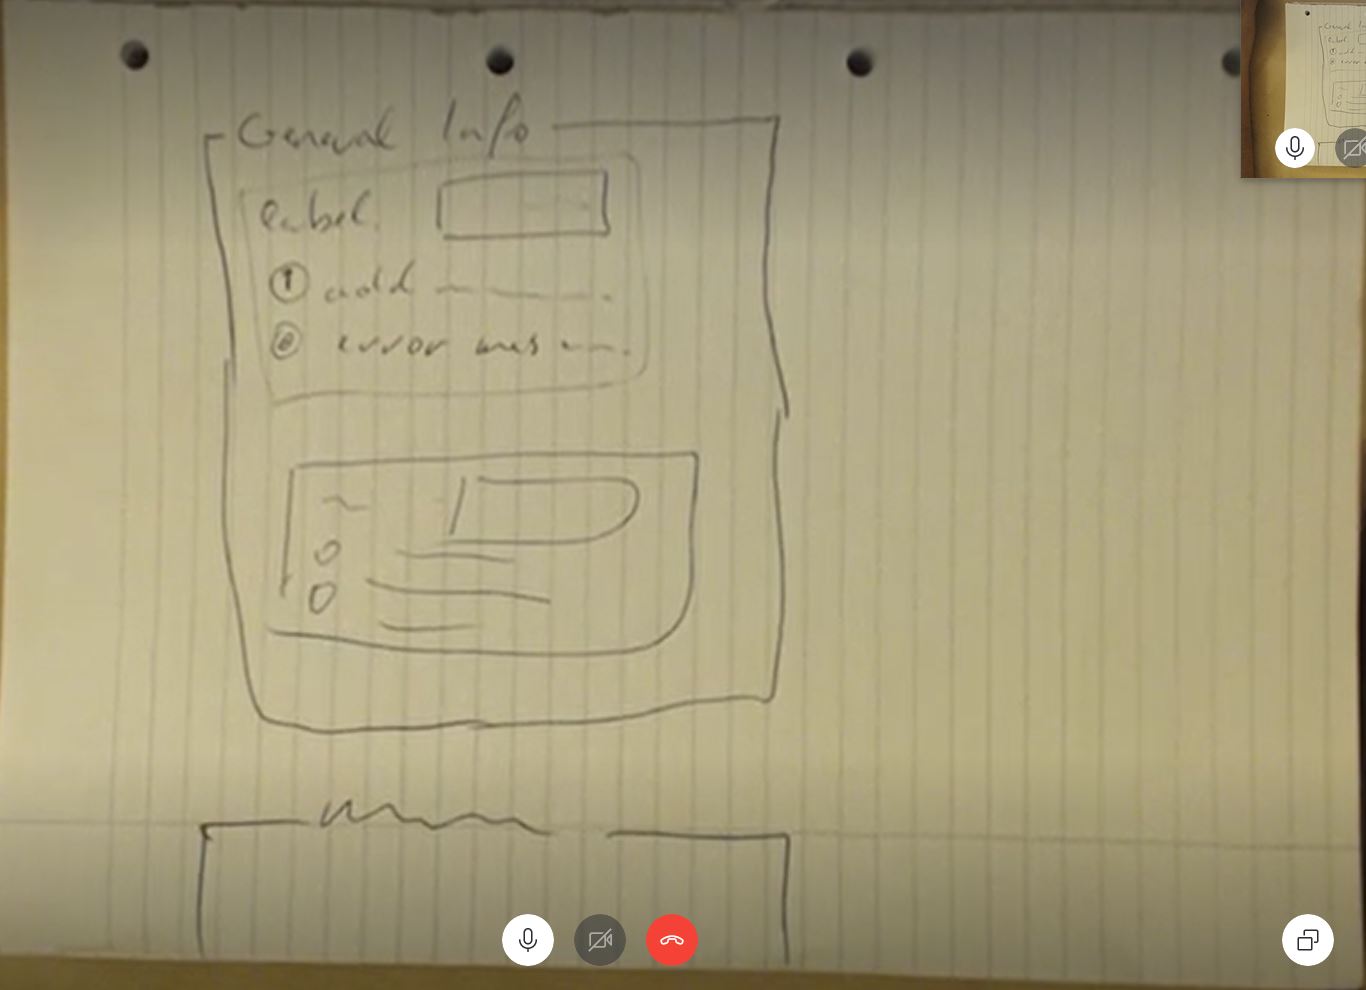 General Info
label
① add
error mes